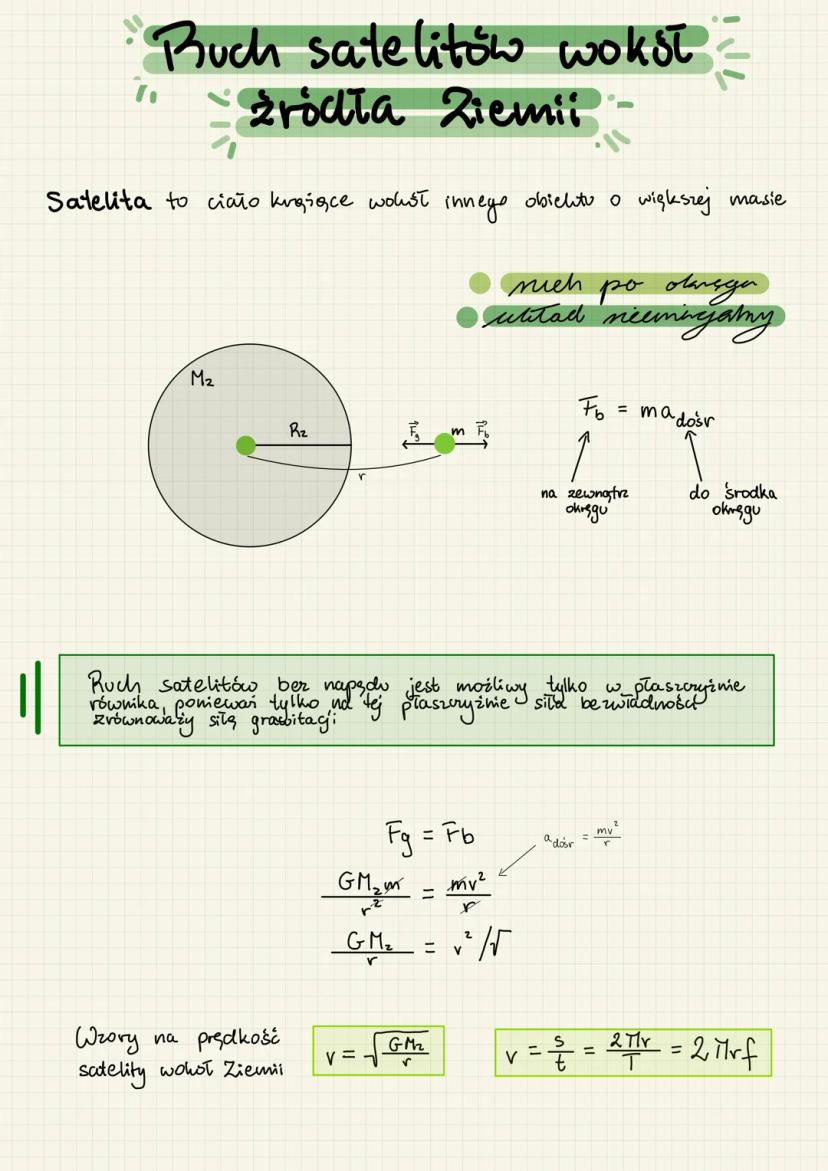 Ruch satelitów wokół
źródła Ziemii
Satelita to ciało krążące wokół innego obiektu o większej masie
ruch po okręgu
układ nieinercjalny
M_z
R_z
F_g m F_b
r
F_b = m a_dośr
na zewnątrz
okręgu
do środka
okręgu
Ruch satelitów bez napędu jest możliwy tylko w płaszczyźnie
równika, ponieważ tylko na tej płaszczyźnie siła bezwładności
zrównoważy siłę grawitacji
F_g = F_b
a_dośr = mv²/r
GM_z m/r² = mv²/r
GM_z/r = v² /√
Wzory na prędkość
satelity wokół Ziemii
v = √(GM_z/r)
v = s/t = 2πr/T = 2πrf